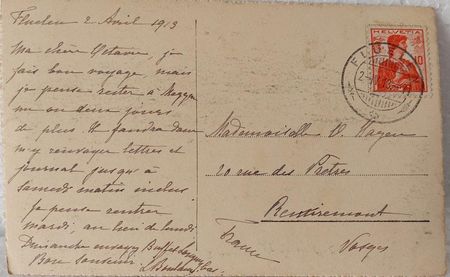 Fluelen 2 Avril 1913
Ma chère Octavie, je
fais bon voyage, mais
je pense rester à Meggen
un ou deux jours
de plus. Il faudra donc
m'y renvoyer lettres et
journal jusqu'à
samedi matin inclus
je pense rentrer
mardi, au lieu de lundi
Dimanche envoyer
Bon Souvenir
HELVETIA
10
FLÜELEN
Mademoiselle O.
20 rue des Prêtres
Remiremont
France
Vosges